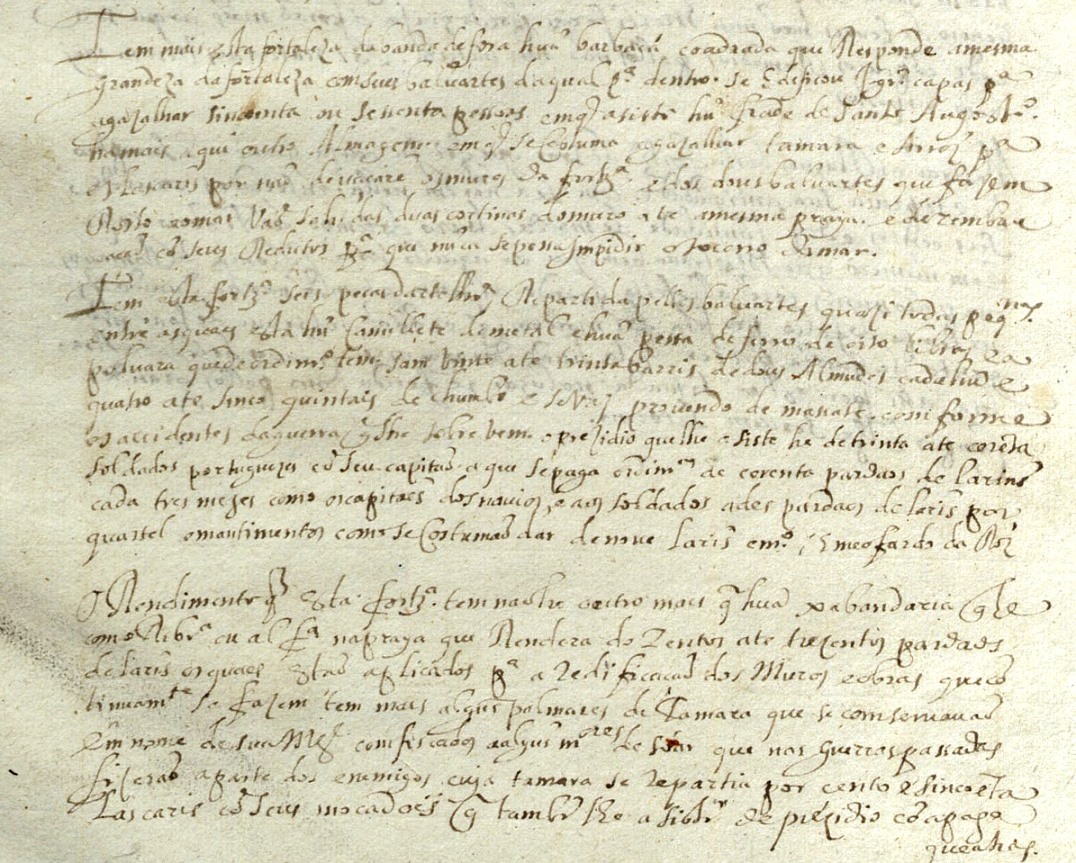 Tem mais esta fortaleza da banda de fora huã barbacã coadrada que Responde a mesma
grandeza da fortaleza com seus baluartes da qual pª dentro se edeficou Jgrª capas pª
agazalhar sincoenta ou sesenta pessoas em q asiste hu frade de Santo Augostº.
ha mais aqui outro Almagem em q se Costuma agazalhar tamara e Arroz pª
os Lascaris por não os muros da fortzª e dos dous baluartes que fazem
Rosto ao mar Vão sahidas duas cortinas do muro ate a mesma praya e
cõ seus Redutos pª que nunca se possa Impidir o socorro do mar.
Tem esta fortzª seis pecas dartelhrª Repartida pellos baluartes quazi todas peqnas.
entre as quaes esta hu Camillete de metal e huã pessa de ferro de oito libras e a
poluara que de ordimº tem sam vinte ate trinta barris de dous Almudes cada hu e
quatro ate sinco quintais de chumbo e se vai provendo de mascate conforme
os accidentes da guerra q lhe sobre vem o prezidio que lhe asiste he de trinta ate corẽta
soldados portuguezes cõ seu capitão a que se paga ordimrº de corenta pardaos de larins
cada tres mezes como os capitaes dos navios, e aos soldados a des pardaos de laris por
quartel e mantimentos como se Costumão dar de nove laris e mº e meo fardo da Roz
O Rendimento q Esta fortzª tem não he outro mais q huã xabandaria q he
como Ribrª ou alfª na praya que Rendera do Zentos ate trezentos pardaos
de laris os quaes Estão aplicados pª a Redificacaõ dos Muros e obras que cõ
tinuamte se fazem tem mais algus palmares de Tamara que se comservavaõ
Em nome de sua Magde comfiscados a algus mores de soar que nas guerras passadas
fizeraõ a parte dos enemigos cuja tamara se Repartia por cento e sincoẽta
Lascaris cõ seus mocadoẽs q tambẽ lhe asistem de prezidio cõ a paga
que a hos.